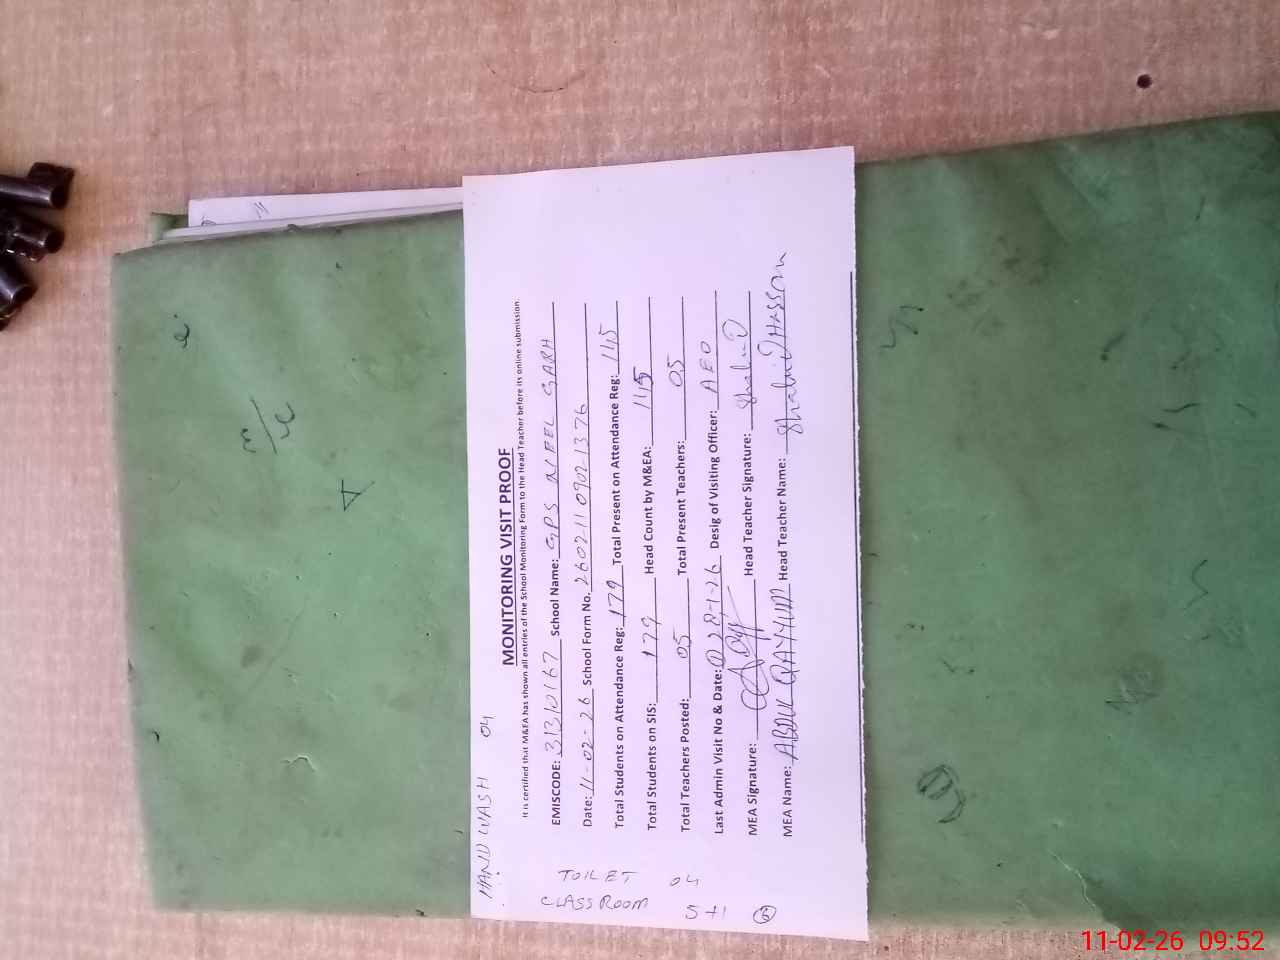 HAND WASH 04
MONITORING VISIT PROOF
It is certified that M&EA has shown all entries of the School Monitoring Form to the Head Teacher before its online submission
EMISCODE: 31310167 School Name: GPS NEEL GARH
Date: 11-02-26 School Form No. 2602-110902-1376
Total Students on Attendance Reg: 179 Total Present on Attendance Reg: 145
Total Students on SIS: 179 Head Count by M&EA: 145
Total Teachers Posted: 05 Total Present Teachers: 05
Last Admin Visit No & Date: 28-1-26 Desig of Visiting Officer: AEO
MEA Signature: Head Teacher Signature: Shahid
MEA Name: ABDUL QAYYUM Head Teacher Name: Shahid Hassan
TOILET 04
CLASSROOM 5+1 6
11-02-26 09:52